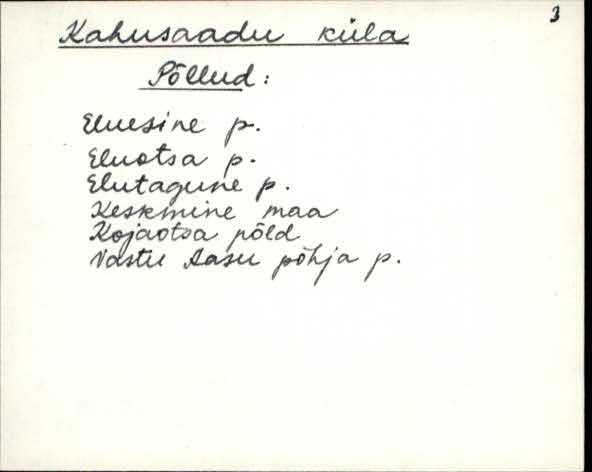 3
Kahusaadu küla
Põllud:
Eluesine p.
Eluotsa p.
Elutagune p.
Keskmine maa
Kojaotsa põld
Vastu Aasu põhja p.